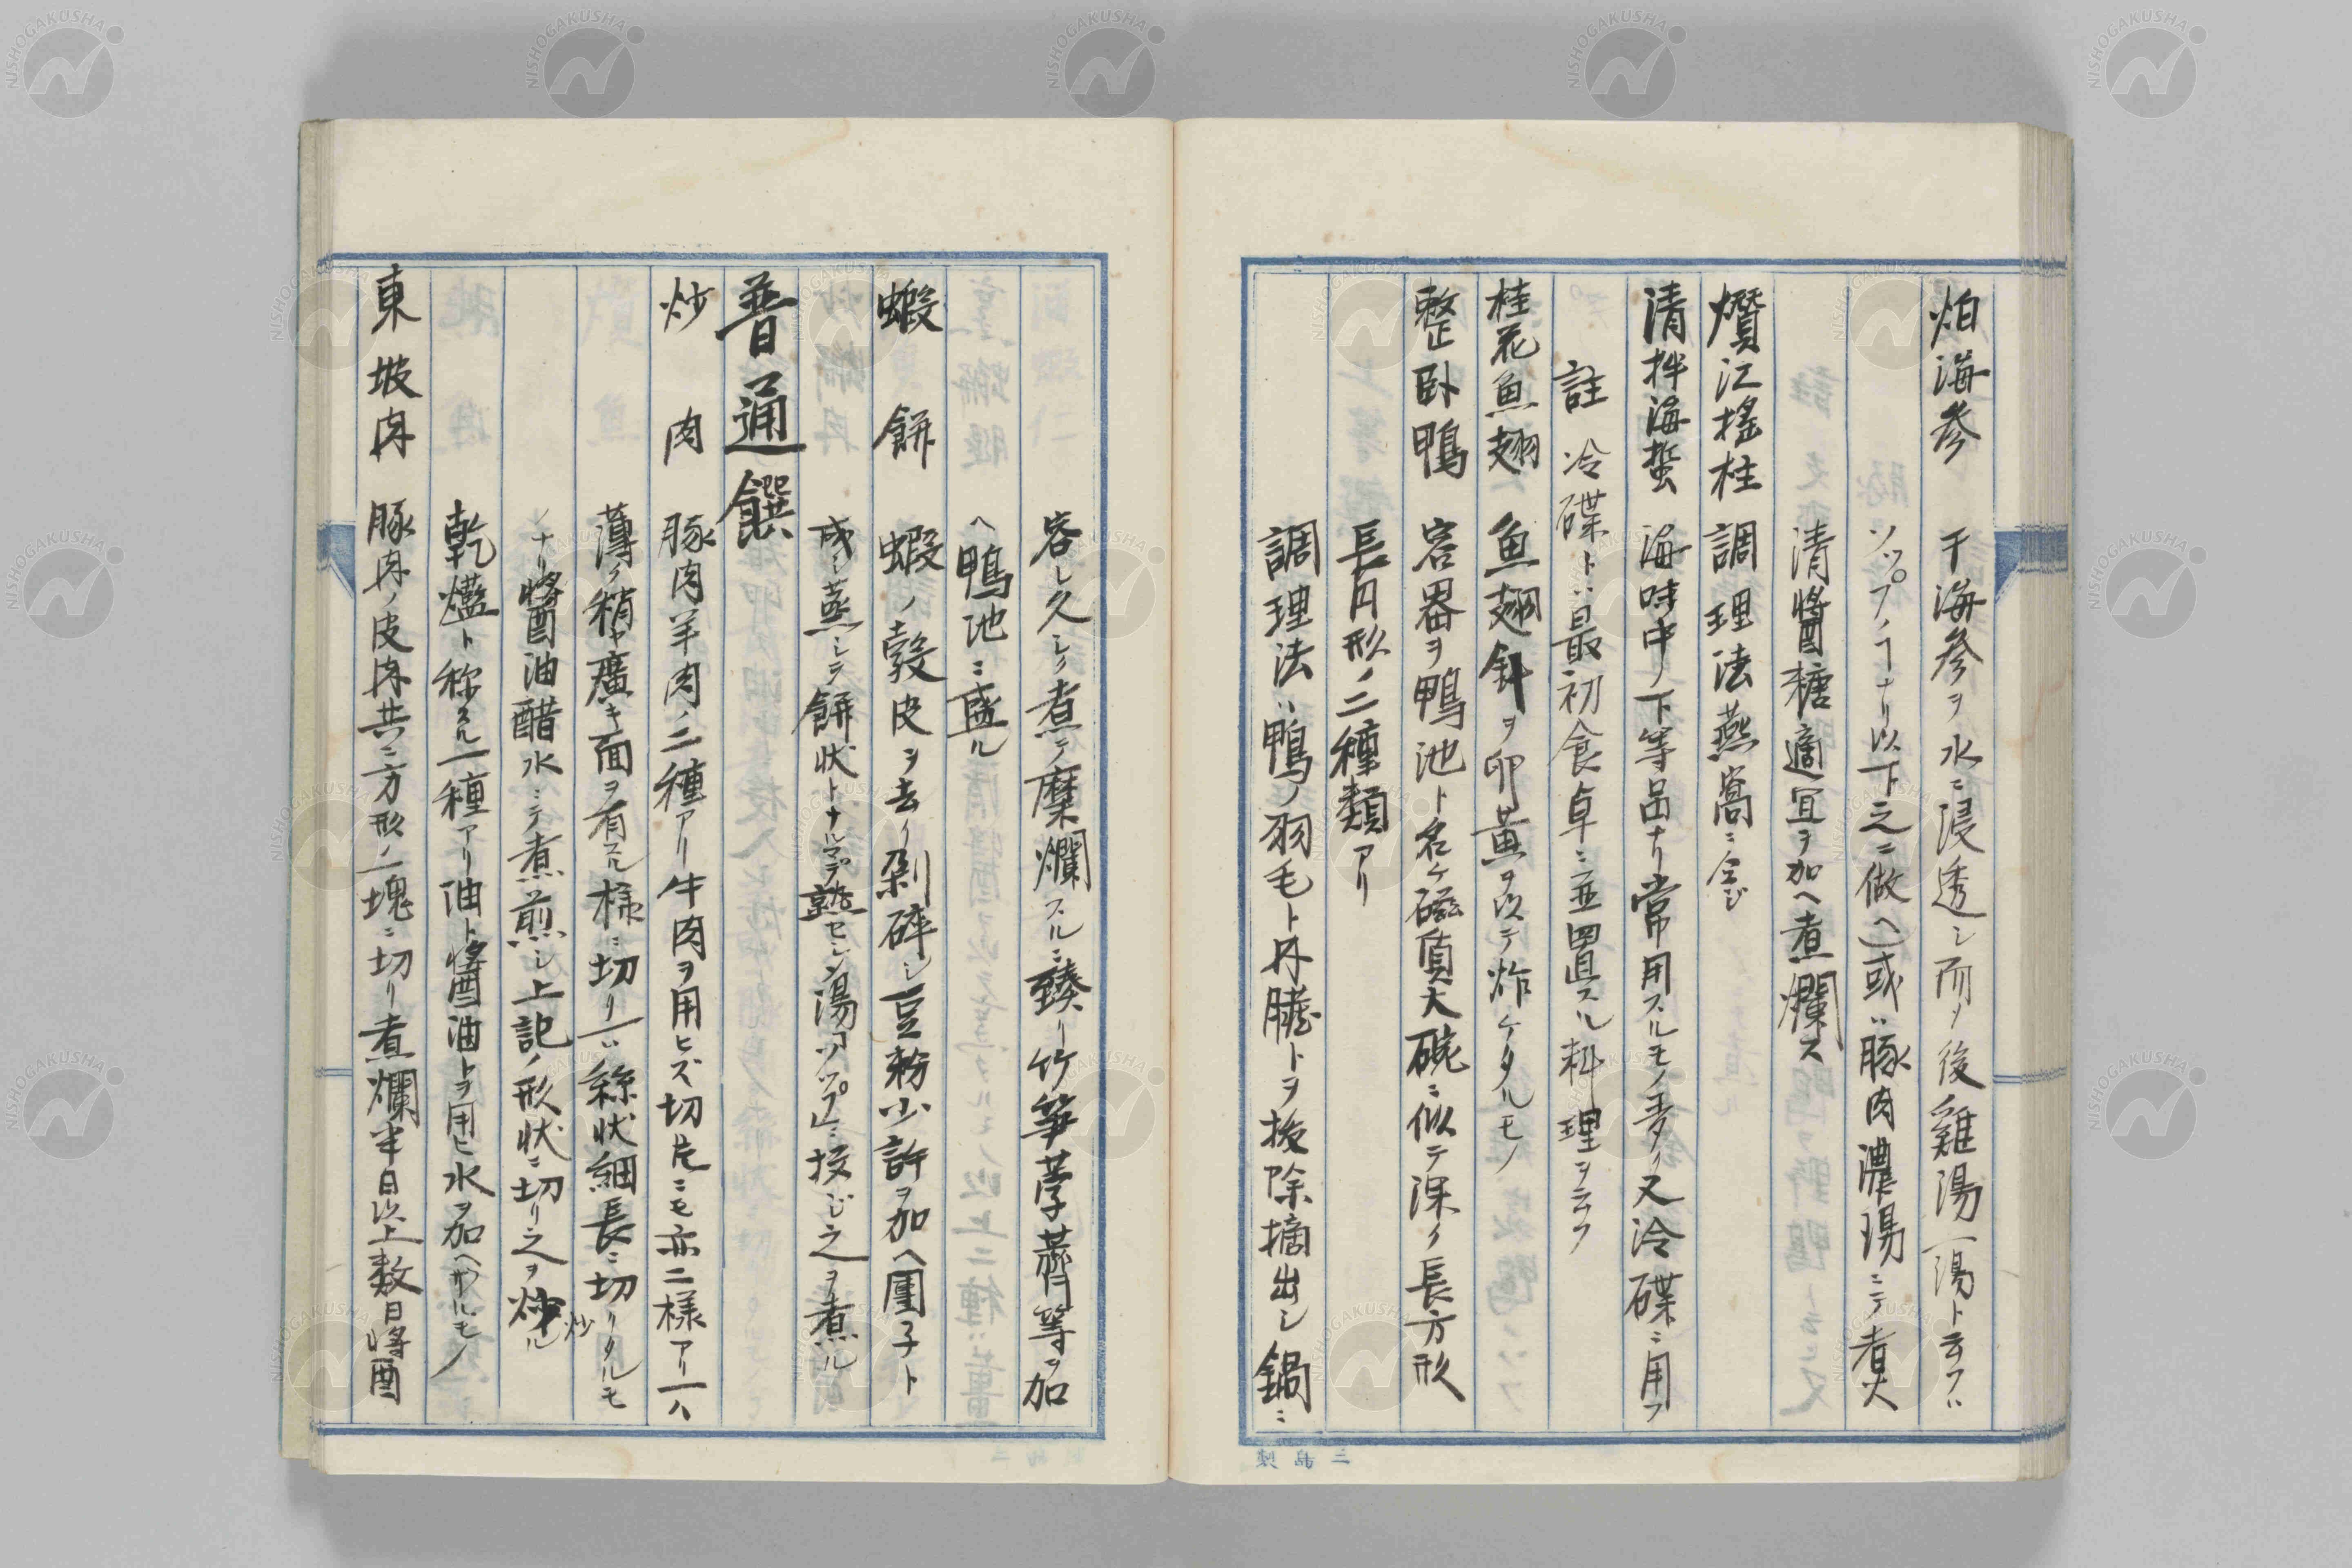 炮海参 干海参ヲ水ニ浸透シ而ノ後雞湯(湯ト云フハ
ソップノヿナリ以下之ニ倣ヘ)或ハ豚肉濃湯ニテ煮
清醬糖適宜ヲ加ヘ煮爛ス
江搖柱 調理法燕窩ニ仝じ
清拌海蜇 海味中ノ下等品ナリ常用スルモノ多クハ又冷碟ニ用フ
註 冷碟トハ最初食卓ニ並置スル料理ヲ云フ
桂花魚翅 魚翅針ヲ卯黄ヲ以テ炸ケタルモノ
整卧鴨 容器ヲ鴨池ト名ケ磁質大碗ニ似テ深ク長方形
長円形ノ二種類アリ
調理法ハ鴨ノ羽毛ト丹臓トヲ抜除摘出シ鍋ニ
容レ久シク煮テ糜爛スルニ臻リ竹笋荸薺等ヲ加
ヘ鴨池ニ盛ル
蝦餅 蝦ノ殻皮ヲ去リ剁碎シ豆粉少許ヲ加ヘ團子ト
成シ蒸シテ餅状トナルマデ熟セシ湯「ソップ」ニ投じ之ヲ煮ル
普通饌
炒肉 豚肉羊肉ノ二種アリ牛肉ヲ用ヒズ切片ニモ亦二様アリ一ハ
薄ク稍や廣キ面ヲ有スル様ニ切リ一ハ絲状細長ニ切リタルモ
ノナリ醬油醋水ニテ煮煎シ上記ノ形状ニ切リ之ヲル
炒
乾爁ト称スル一種アリ油ト醬油トヲ用ヒ水ヲ加ヘザルモノ
東坡肉 豚肉ノ皮肉共ニ方形ノ一塊ニ切リ煮爛半日以上数日醬
製島三